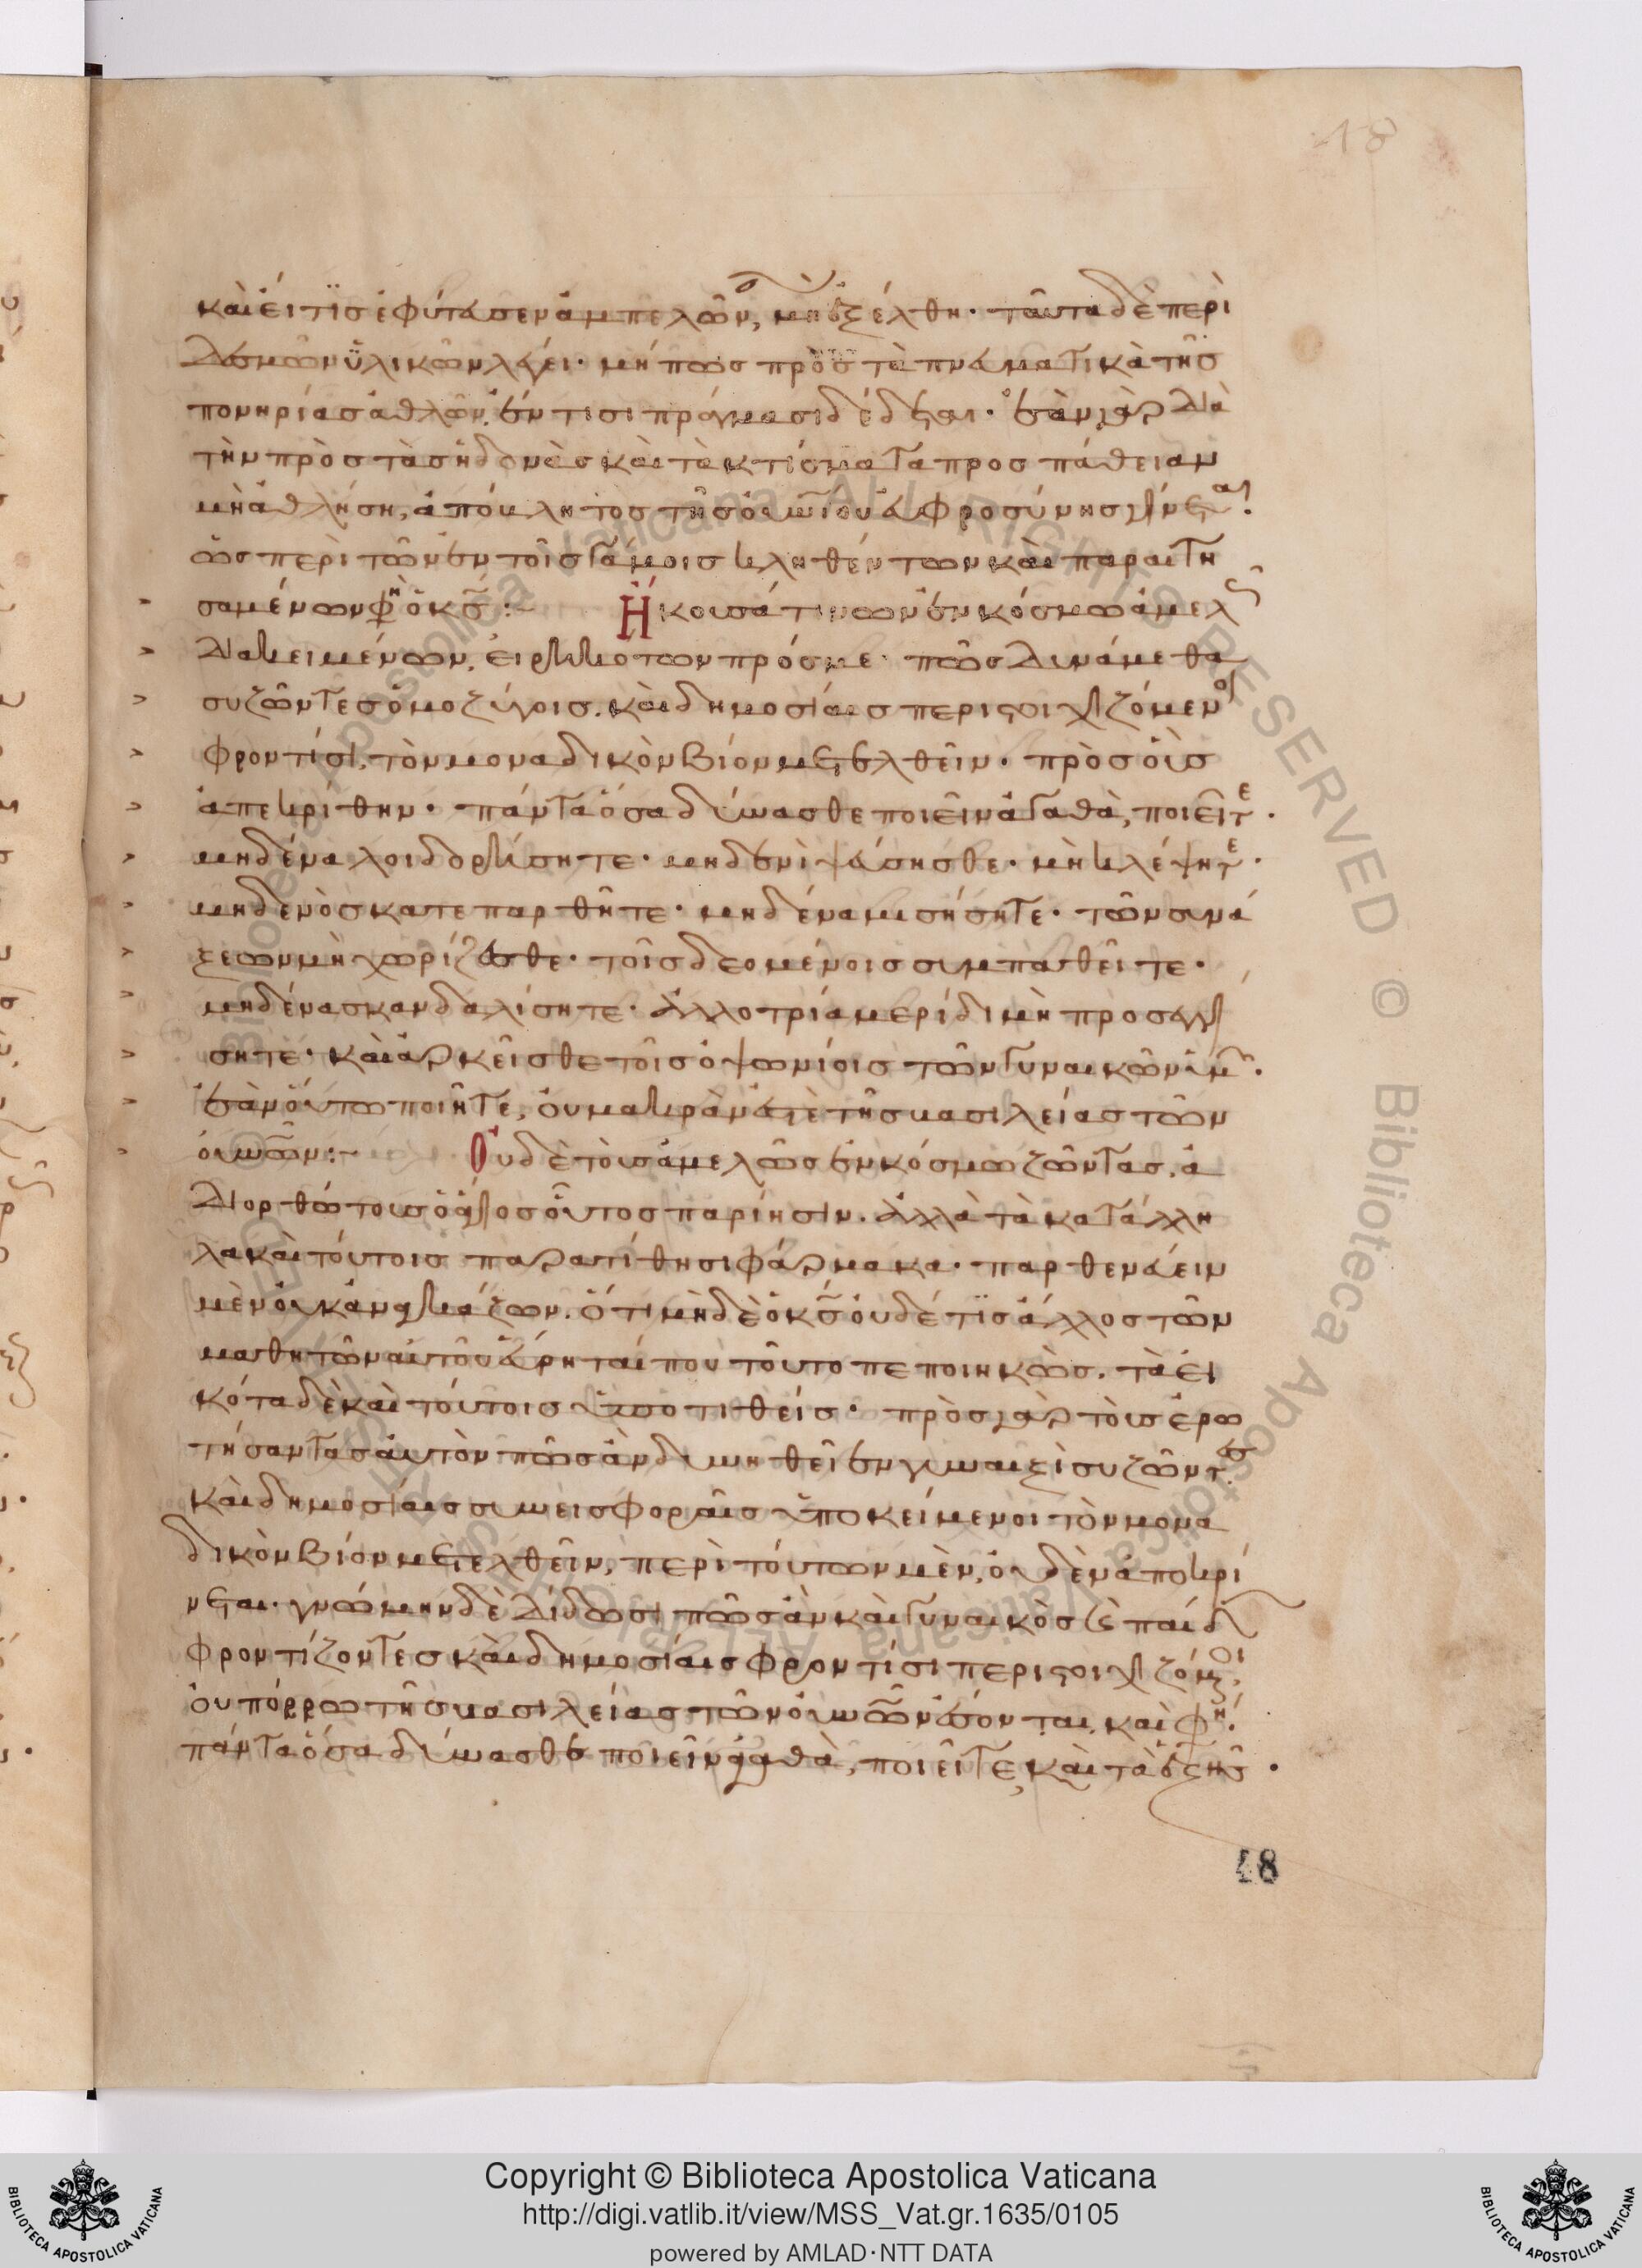 18
καὶ εἴ τις ἐφύτευσεν ἀμπελῶνα, μὴ ἐξέλθη· ταῦτα δὲ περὶ
δεσμῶν ὑλικῶν λέγει· μή πως πρὸς τὰ πνευματικὰ τῆς
πονηρίας ἀθλῶν, ἔν τισι πράγμασι δέδεται· ἐὰν γὰρ διὰ
τὴν πρὸς τὰς ἡδονὰς καὶ τὰ κτίσματα προσπάθειαν
μὴ ἀθλήση, ἀπόκλητος τῆς οὐνίου εὐφροσύνης γίνεται·
ὡς περὶ τῶν ἐν τοῖς γάμοις κληθέντων καὶ παραιτη
σαμένων φη ὁ κς :- Ἤκουσά τινων ἐν κόσμω ἀμελῶς
διακειμένων, εἰρηκότων πρός με· πῶς δυνάμεθα
συζῶντες ὁμοζύγοις, καὶ δημοσίαις περιστοιχιζόμενοι
φροντίσι, τὸν μοναδικὸν βίον μετελθεῖν· πρὸς οὓς
ἀπεκρίθην· πάντα ὅσα δύνασθε ποιεῖν ἀγαθὰ, ποιεῖτε·
μηδένα λοιδορήσητε· μηδενὶ ψεύσησθε· μὴ κλέψητε·
μηδενὸς κατεπαρθῆτε· μηδένα μισήσητε· τῶν συνά
ξεων μὴ χωρίζεσθε· τοῖς δεομένοις συμπαθεῖτε·
μηδένα σκανδαλίσητε· ἀλλοτρία μερίδι μὴ προσεγγί
σητε· καὶ ἀρκεῖσθε τοῖς ὀψωνίοις τῶν γυναικῶν ὑμῶν·
ἐὰν οὕτω ποιῆτε, οὐ μακράν ἐστε τῆς βασιλείας τῶν
οὐνῶν :- Οὐδὲ τοὺς ἀμελῶς ἐν κόσμω ζῶντας, ἀ
διορθώτους ὁ ἅγιος οὗτος παρίησιν. ἀλλὰ τὰ κατάλλη
λα καὶ τούτοις παρατίθησι φάρμακα· παρθενεύειν
μὲν οὐκ ἀναγκάζων. ὅτι μὴδὲ ὁ κς οὐδέ τις ἄλλος τῶν
μαθητῶν αὐτοῦ εὕρηταί που τοῦτο πεποιηκώς. τὰ εἰ
κότα δὲ καὶ τούτοις ὑποτιθείς· πρὸς γὰρ τοὺς ἐρω
τήσαντας αὐτὸν πῶς ἂν δυνηθεῖεν γυναιξὶ συζῶντες
καὶ δημοσίαις συνεισφοραῖς ὑποκείμενοι τὸν μονα
δικὸν βίον μετελθεῖν, περὶ τούτων μὲν, οὐδὲν ἀποκρί
νεται. γνώμην δὲ δίδωσι πῶς ἂν καὶ γυναικὸς καὶ παίδων
φροντίζοντες καὶ δημοσίαις φροντίσι περιστοιχιζόμενοι
οὐ πόρρω τῆς βασιλείας τῶν οὐνῶν ἔσονται, καὶ φη·
πάντα ὅσα δύνασθε ποιεῖν ἀγαθὰ, ποιεῖτε, καὶ τὰ ἑξῆς ·
48
Copyright © Biblioteca Apostolica Vaticana
http://digi.vatlib.it/view/MSS_Vat.gr.1635/0105
powered by AMLAD·NTT DATA
BIBLIOTECA APOSTOLICA VATICANA
BIBLIOTECA APOSTOLICA VATICANA